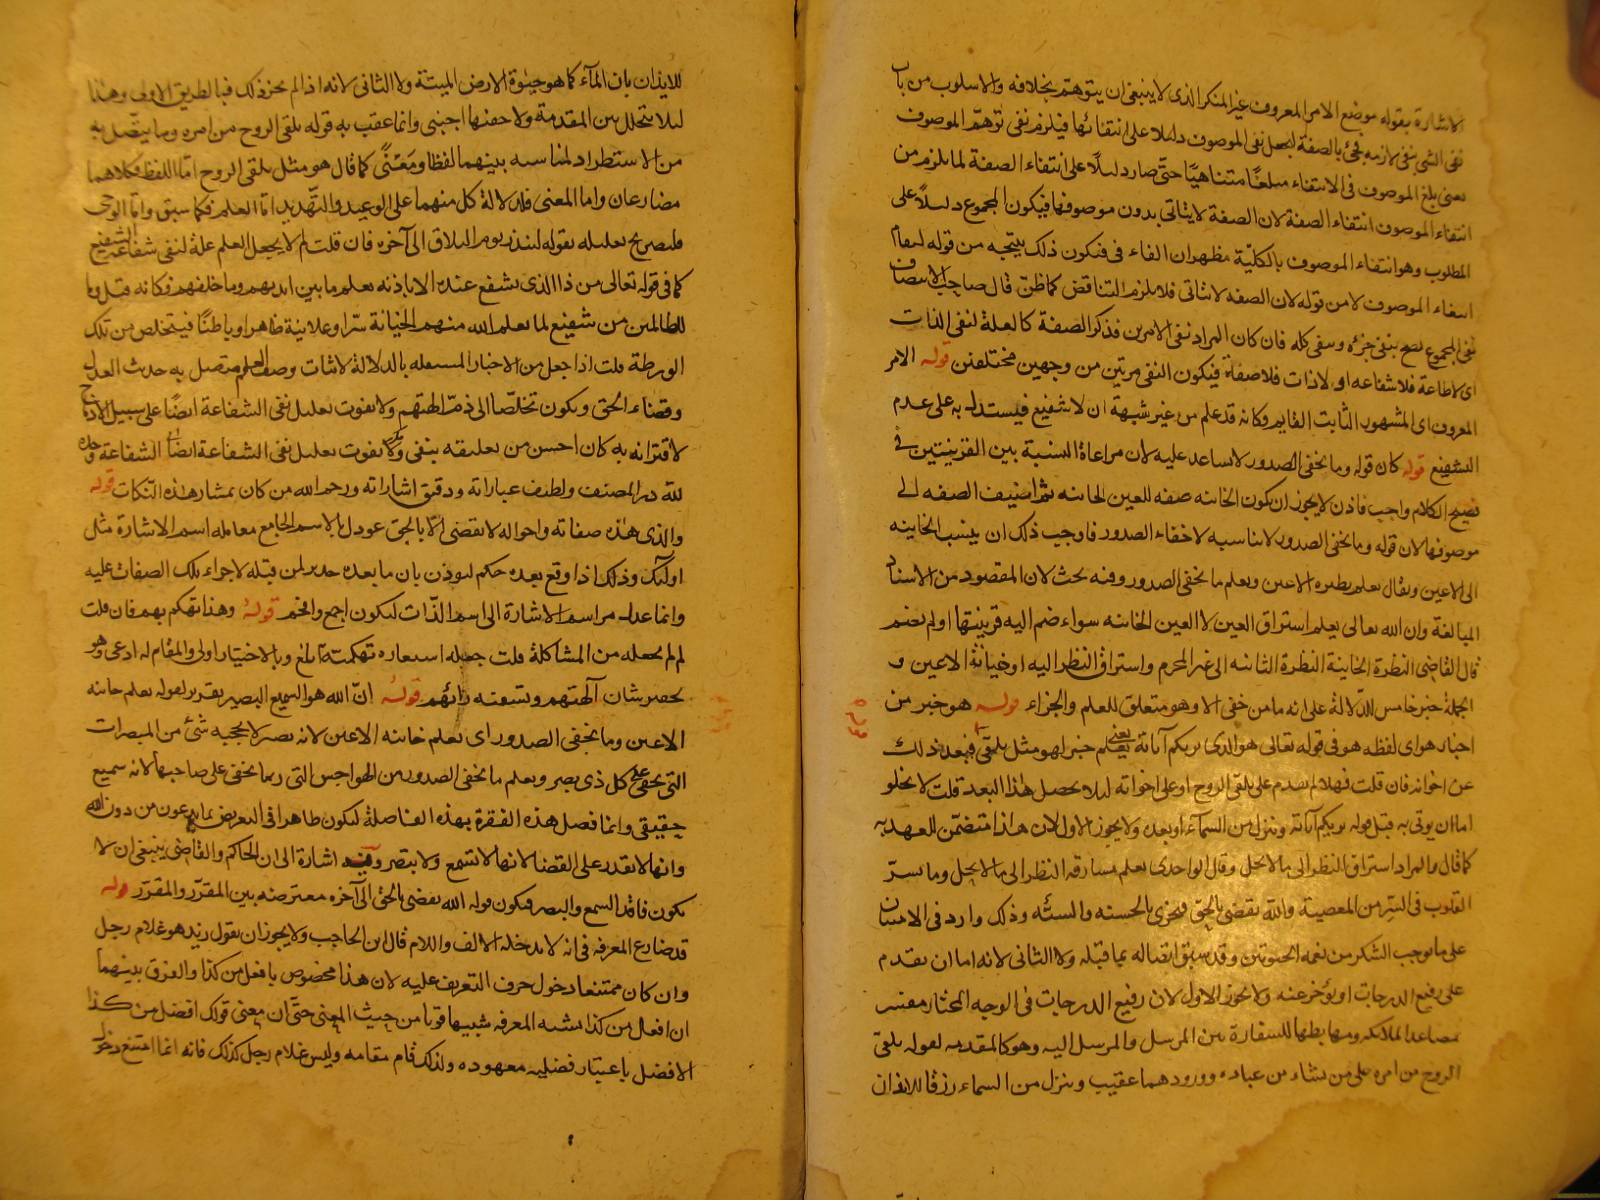 الاشارة بقوله موضع الامر المعروف غير المنكر الذى لا ينبغى ان يتوهم بخلافه والاسلوب من باب
نفى الشى بنفى لازمه فجئ بالصفة ليجعل نفى الموصوف دليلا على انتفائها فيلزم نفى توهم الموصوف
يعنى بلغ الموصوف فى الانتفاء مبلغا متناهيا حتى صار دليلا على انتفاء الصفة لما يلزم من
انتفاء الموصوف انتفاء الصفة لان الصفة لا يتاتى بدون موصوفها فيكون المجموع دليلا على
المطلوب وهو انتفاء الموصوف بالكلية فظهر ان الفاء فى فتكون ذلك نتيجة من قوله ليقام
انتفاء الموصوف لا من قوله لان الصفة لا تتاتى فلا يلزم التناقض كما ظن قال صاحب الانتصاف
نفى المجموع يصح بنفى جزءه وبنفى كله فان كان المراد نفى الامرين فذكر الصفة كالعلة لنفى الذات
اى لا طاعة فلا شفاعة او لا ذات فلا صفة فيكون النفى مرتين من وجهين مختلفين قوله الامر
المعروف اى المشهور الثابت القايم وكانه قد علم من غير شبهة ان لا شفيع فيستدل به على عدم
الشفيع قوله كان قوله وما تخفى الصدور لا يساعد عليه لان مراعاة النسبة بين القرينتين فى
فصيح الكلام واجب فاذن لا يجوز ان تكون الخاينة صفة للعين الخاينة ثم اضيف الصفة الى
موصوفها لان قوله وما تخفى الصدور لا يناسبه لاخفاء الصدور فاوجب ذلك ان ينسب الخاينة
الى الاعين ويقال يعلم نظره الاعين ويعلم ما تخفى الصدور وفيه بحث لان المقصود من الاسناد
المبالغة وان الله تعالى يعلم استراق العين لا العين الخاينة سواء ضم اليه قرينتها او لم تضم
قال القاضى النظرة الخاينة النظرة الثانية الى غير المحرم واستراق النظر اليه او خيانة الاعين و
الجملة خبر خامس للدلالة على انه ما من خفى الا وهو متعلق للعلم والجزاء قوله هو خبر من
اخبار هو اى لفظه هو فى قوله تعالى هو الذى يريكم آياته يعنى يعلم خبر لهو مثل يلقى فبعد ذلك
عن اخواته فان قلت فهلا لم يقدم على يلقى الروح او على اخواته ليلا يحصل هذا البعد قلت لا يخلو
اما ان يوتى به قبل قوله يريكم آياته وينزل من السماء او بعده ولا يجوز الاول لان هذا متضمن للتهديد
كما قال والمراد استراق النظر الى ما لا يحل وقال الواحدى يعلم مسارقة النظر الى ما لا يحل وما يسر
القلوب فى السر من المعصية والله يقضى بالحق فيجزى بالحسنة والسيئة وذلك وارد فى الامتنان
على ما يوجب الشكر من نعمه وقد سبق اتصاله بما قبله ولا الثانى لانه اما ان يقدم
على رفيع الدرجات او يؤخر عنه ولا يجوز الاول لان رفيع الدرجات فى الوجه المختار مفسر
بمصاعد الملائكة ومهابطها للسفارة بين المرسل والمرسل اليه وهو كالمقدمة لقوله يلقى
الروح من امره على من يشاء من عباده وورودهما عقيب وينزل من السماء رزقا للايذان
للايذان بان الماء كما هو حيوة الارض الميتة ولا الثانى لانه اذا لم يجز ذلك فبالطريق الاولى وهذا
ليلا يتخلل بين المقدمة ولاحقها اجنبى وانما عقب به قوله يلقى الروح من امره وما يتصل به
من الاستطراد لمناسبه بينهما لفظا ومعنى كما قال هو مثل يلقى الروح اما اللفظ فكلاهما
مضارعان واما المعنى فلدلالة كل منهما على الوعيد والتهديد اما العلم فكما سبق واما الوحى
فلتصريح تعليله بقوله لينذر يوم التلاق الى آخره فان قلت لم لا يجعل العلم علة لنفى شفاعة الشفيع
كما فى قوله تعالى من ذا الذى يشفع عنده الا باذنه يعلم ما بين ايديهم وما خلفهم فكانه قيل وما
للظالمين من شفيع لما يعلم الله منهم الخيانة سرا وعلانية ظاهرا وباطنا فيتخلص من تلك
الورطة قلت اذا جعل من الاخبار المستقله بالدلالة لاثبات وصف العلم متصل به حدث العدل
وقضاء الحق ويكون تخلصا الى ذم آلهتهم ولا يفوت تعليل نفى الشفاعة ايضا على سبيل الادماج
لاقترانه به كان احسن من تعليقه بنفى ولا يفوت تعليل نفى الشفاعة ايضا الشفاعة وحده
لله در المصنف ولطيف عباراته ودقيق اشاراته ورحم الله من كان بمشار هذه النكات قوله
والذى هذه صفاته واحواله لا يقضى الا بالحق عودل بالاسم الجامع معامله اسم الاشارة مثل
اوليك وذلك اذا وقع بعده حكم ليوذن بان ما بعده جدير لمن قبله لاجراء تلك الصفات عليه
وانما عدل من اسم الاشارة الى اسم الذات ليكون اجمع وافخم قوله وهذا تهكم بهم فان قلت
لم لم يجعله من المشاكلة قلت جعله استعارة تهكمية ابلغ وبالاختيار اولى والمقام له ادعى وهو
تحقير شان آلهتهم وتسفيه رائهم قوله ان الله هو السميع البصير تقرير لقوله يعلم خاينه
الاعين وما تخفى الصدور اى يعلم خاينه الاعين لانه بصر لا يحجبه شئ من المبصرات
التى تخفى على كل ذى بصر ويعلم ما تخفى الصدور من الهواجس التى ربما تخفى على صاحبها لانه سميع
حقيقى وانما فصل هذه الفقرة بهذه الفاصلة ليكون ظاهرا فى التعريض بما يدعون من دون الله
وانها لا تقدر على القضا لانها لا تسمع ولا تبصر وفيه اشارة الى ان الحاكم والقاضى ينبغى ان لا
يكون فاقد السمع والبصر فيكون قوله الله يقضى بالحق الى آخره معترضه بين المقرر والمقرر قوله
قد ضارع المعرفه فى انه لا يدخله الالف واللام قال ابن الحاجب ولا يجوز ان تقول زيد هو غلام رجل
وان كان ممتنعا دخول حرف التعريف عليه لان هذا مخصوص بافعل من كذا والفرق بينهما
ان افعل من كذا يشبه المعرفه شبها قويا من حيث المعنى حتى ان معنى قولك افضل من كذا
الافضل باعتبار فضليه معهوده ولذلك قام مقامه وليس غلام رجل كذلك فانه انما امتنع دخول